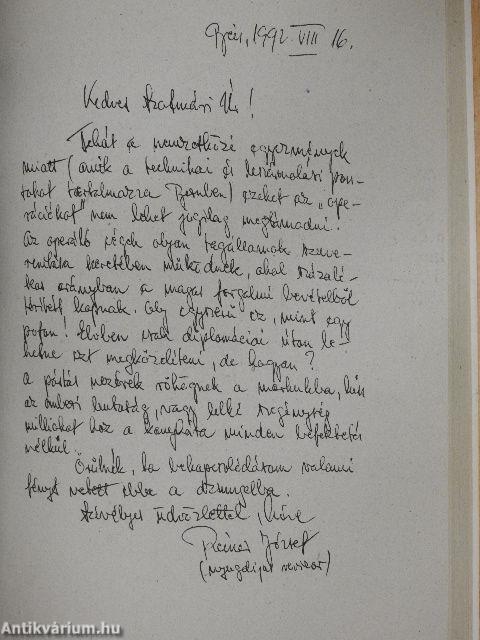 Bécs, 1992. VIII 16.
Kedves Szatmári Úr!
Tehát a nemzetközi egyezmények
miatt (amik a technikai és leszámolási
tartalmazza Bernben) ezeket az „ope-
rációkat" nem lehet jogilag megtámadni.
Az operáló cégek olyan tagállamok szuve-
renitása keretében működnek, ahol százalé-
kos arányban a magas forgalmi bevételből
térítést kapnak. Oly egyszerű ez, mint egy
pofon! Elvben csak diplomáciai úton le-
hetne ezt megközelíteni, de hogyan?
a postás vezérek röhögnek a markukba, hisz
az emberi butaság, vagy lelki szegénység
milliókat hoz a konyhára minden befektetés
nélkül.
Örülnék, ha bekapcsolódásom valami
fényt vetett ebbe a dzsungelba.
Szívélyes üdvözlettel, híve
József
(nyugdíjas revizor)
Antikvárium.hu